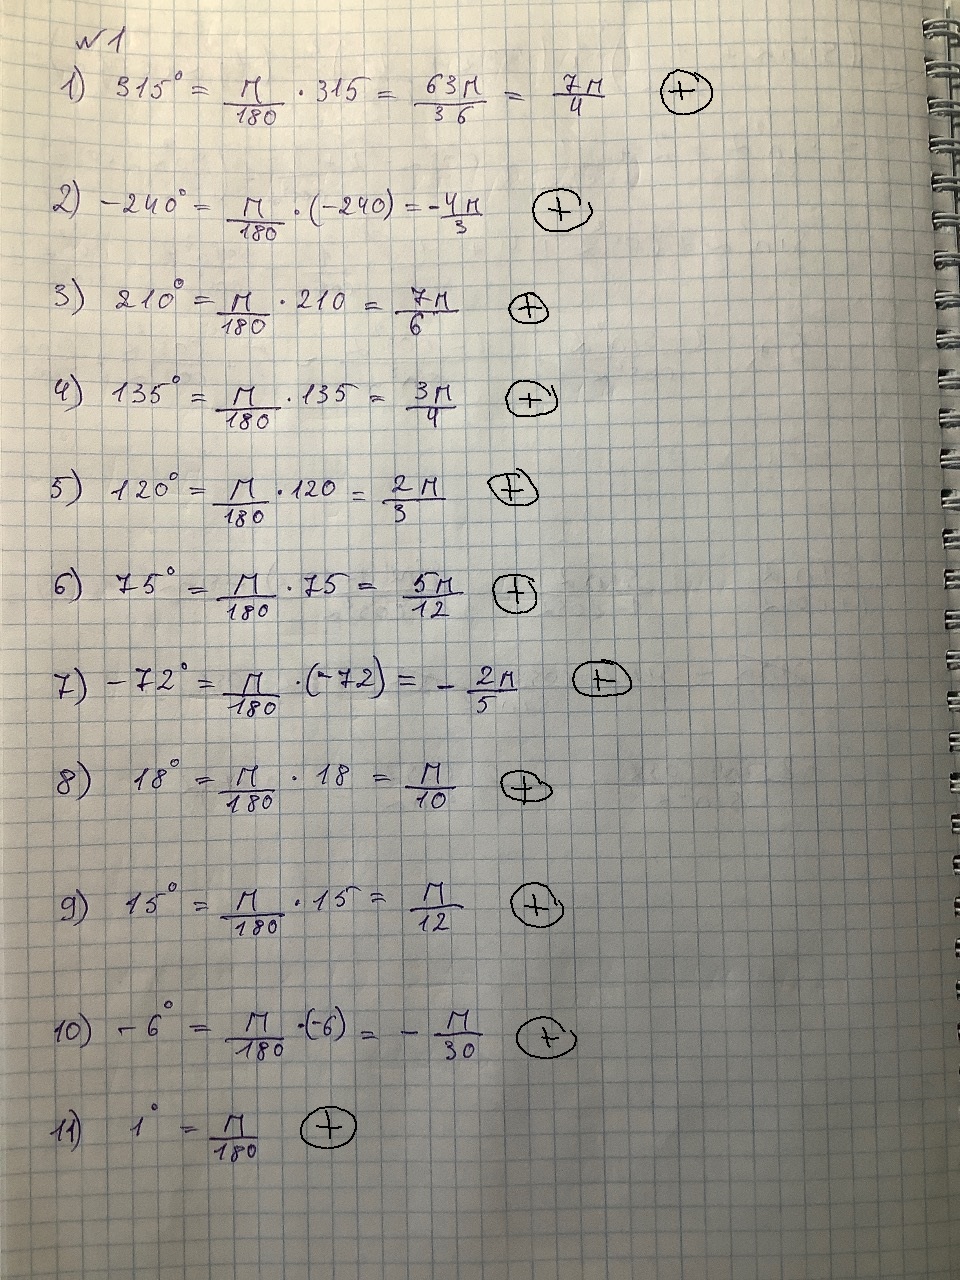 №1
1) 315° = П/180 · 315 = 63П/36 = 7П/4 (+)
2) -240° = П/180 · (-240) = -4П/3 (+)
3) 210° = П/180 · 210 = 7П/6 (+)
4) 135° = П/180 · 135 = 3П/4 (+)
5) 120° = П/180 · 120 = 2П/3 (+)
6) 75° = П/180 · 75 = 5П/12 (+)
7) -72° = П/180 · (-72) = - 2П/5 (+)
8) 18° = П/180 · 18 = П/10 (+)
9) 15° = П/180 · 15 = П/12 (+)
10) -6° = П/180 · (-6) = - П/30 (+)
11) 1° = П/180 (+)